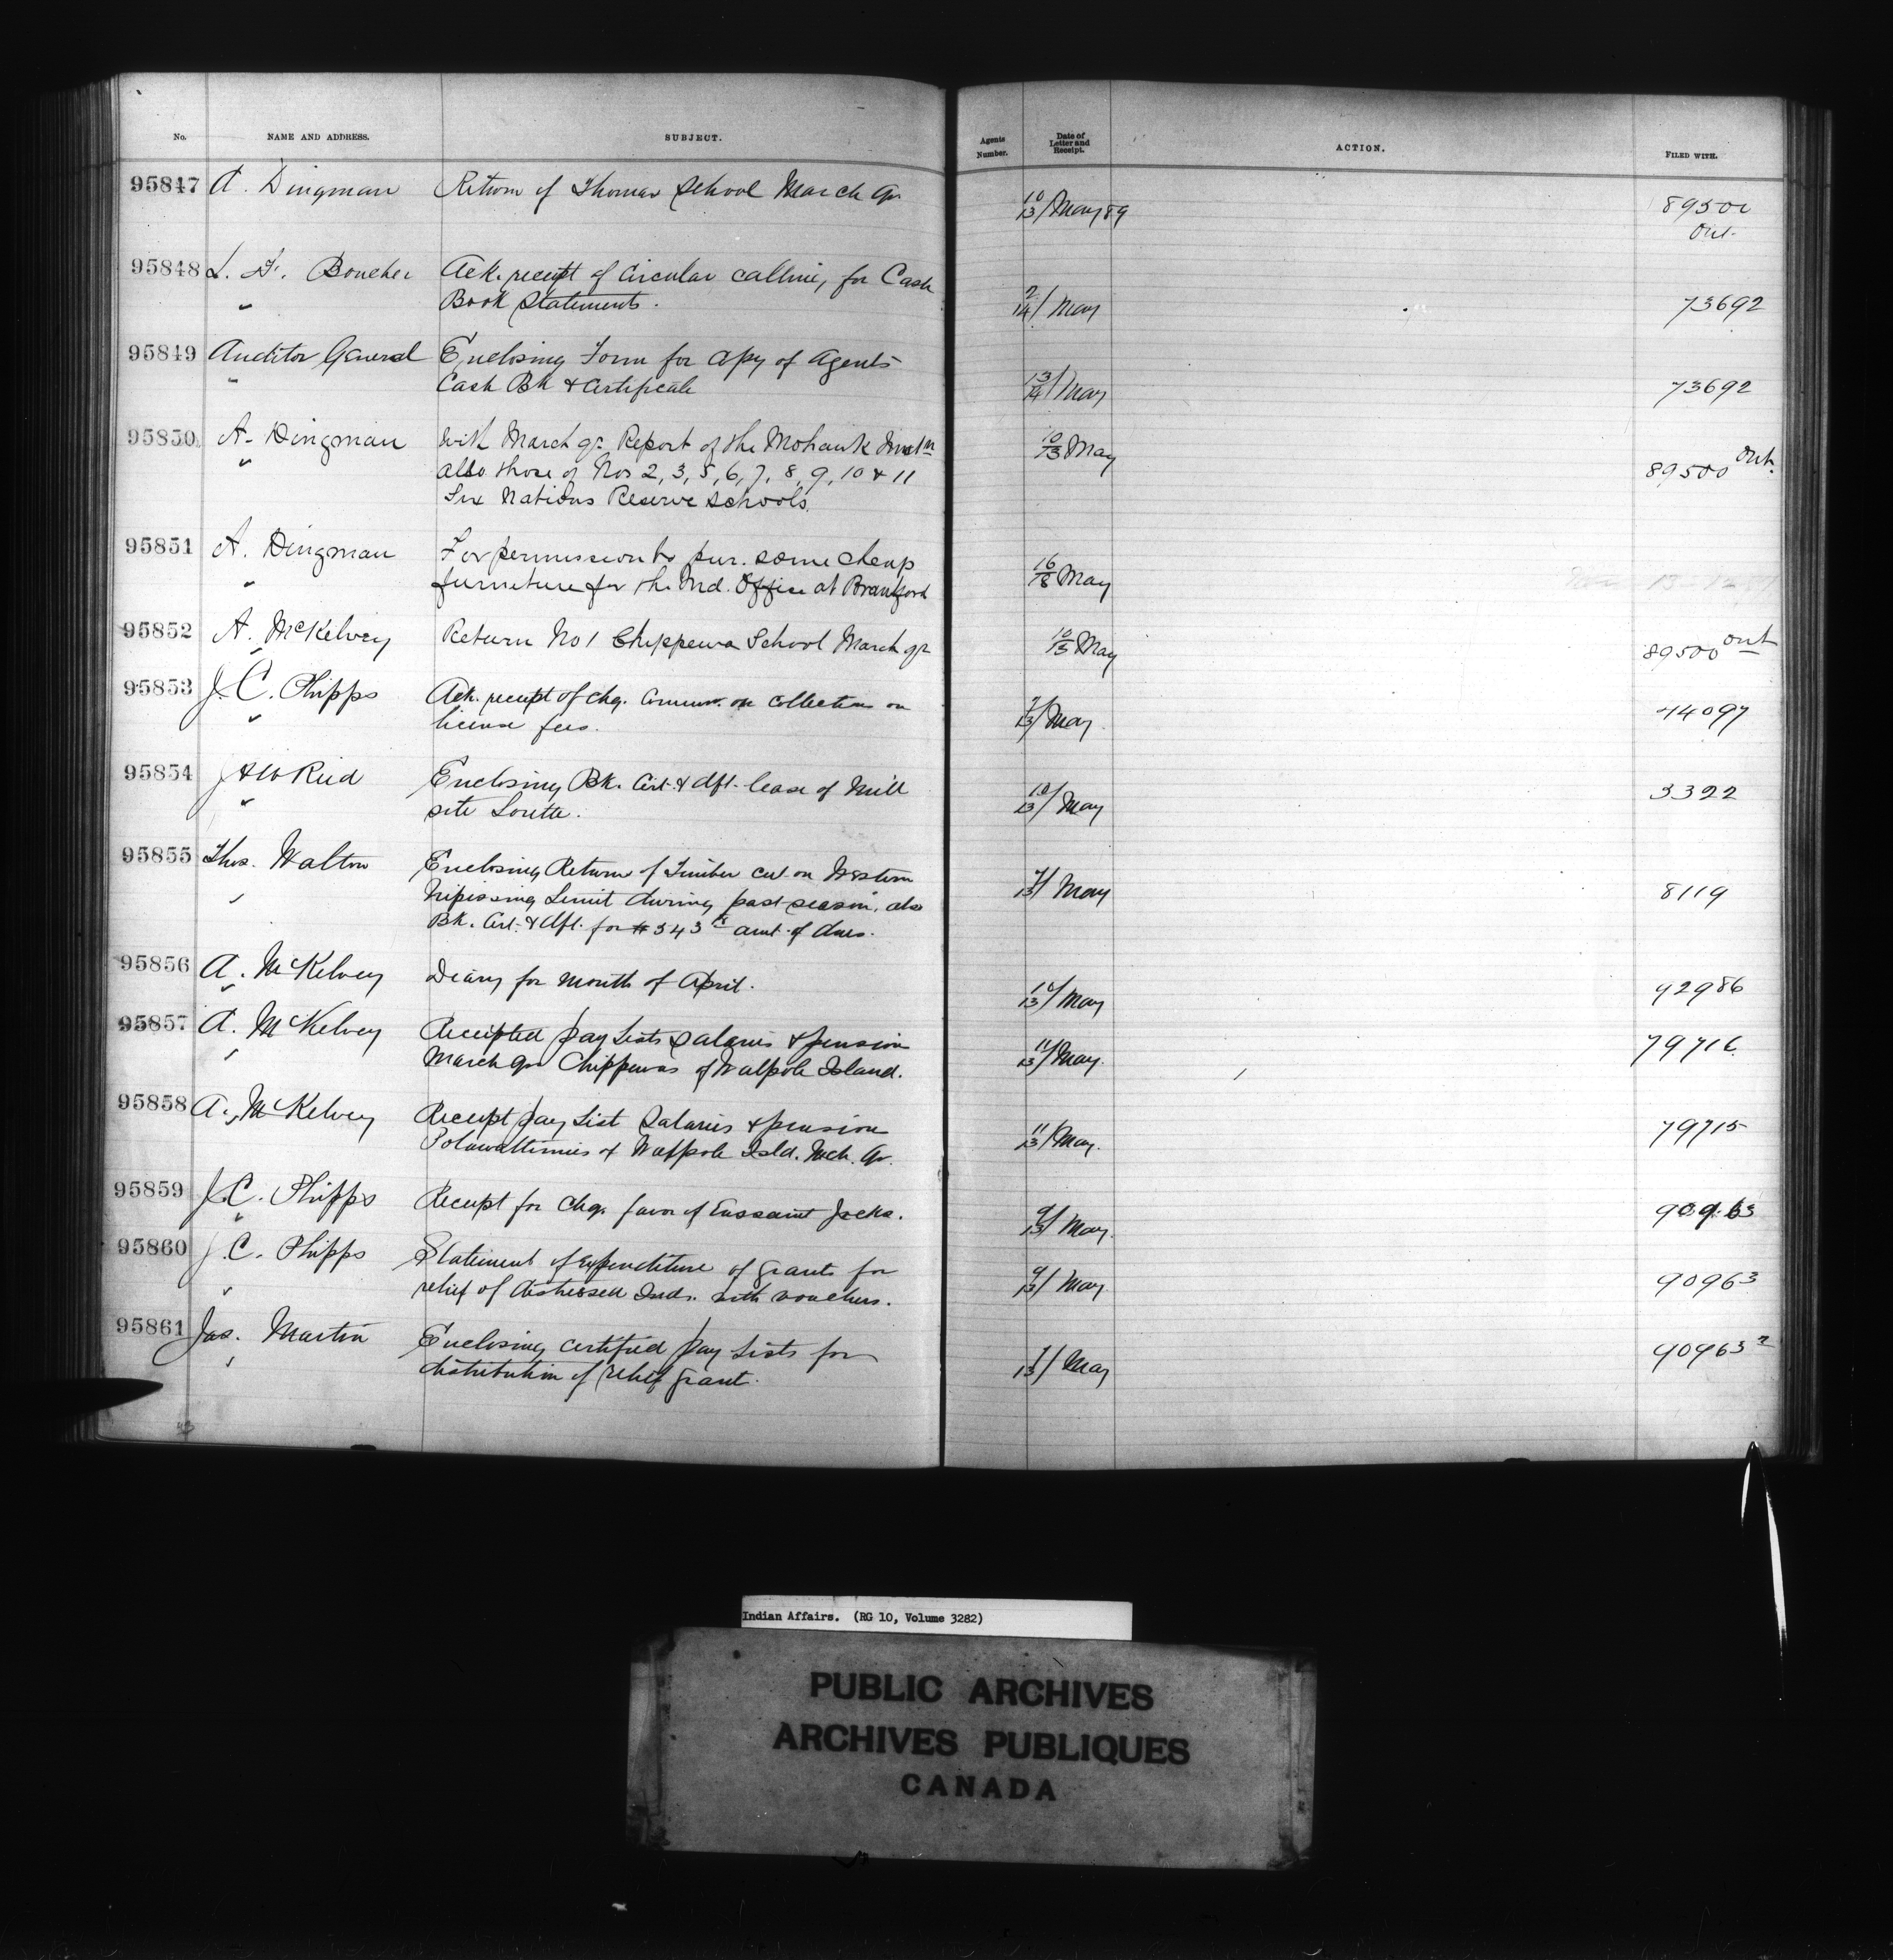 No. NAME AND ADDRESS. SUBJECT. Agents Number. Date of Letter and Receipt. ACTION. FILED WITH.
95847 A. Dingman Return of Thomas School March qr 10/13 May 89 89500 Ont.
95848 L. F. Boucher Ack. receipt of Circular calling for Cash
" Book Statements. 2/14 May 73692
95849 Auditor General Enclosing Form for copy of Agents
" Cash Bk & Certificate 13/14 May 73692
95850 A. Dingman With March qr Report of the Mohawk Instn
" also those of Nos 2, 3, 5, 6, 7, 8, 9, 10 & 11 10/13 May 89500 Ont.
Six Nations Reserve Schools.
95851 A. Dingman For permission to pur. some cheap
" furniture for the Ind. Office at Brantford 16/18 May
95852 A. McKelvey Return No 1 Chippewa School March qr 10/13 May 89500 Ont
95853 J. C. Phipps Ack. receipt of chq. Commn. on Collections on
" license fees. 13 May 44097
95854 J & W Reid Enclosing Bk. Cert. & dft. lease of Mill
" site Lorette. 10/13 May 3322
95855 Thos. Walton Enclosing Return of Timber cut on Western
" Nipissing Limit during past season, also 13 May 8119
Bk. Cert. & dft. for $343 amt. of dues.
95856 A. McKelvey Diary for month of April. 10/13 May 92986
95857 A. McKelvey Receipted pay Lists Salaries & pension
" March qr Chippewas of Walpole Island. 11/13 May. 79716
95858 A. McKelvey Receipt pay List Salaries & pension
" Potawattimies of Walpole Isld. Mch. qr. 11/13 May. 79715
95859 J. C. Phipps Receipt for chq. favor of Eussaint Jacks. 9/13 May. 90963
95860 J. C. Phipps Statement of expenditure of grants for
" relief of distressed Inds. with vouchers. 9/13 May 90963
95861 Jas. Martin Enclosing certified pay Lists for
" distribution of relief grant. 13 May 90963 2
Indian Affairs. (RG 10, Volume 3282)
PUBLIC ARCHIVES
ARCHIVES PUBLIQUES
CANADA